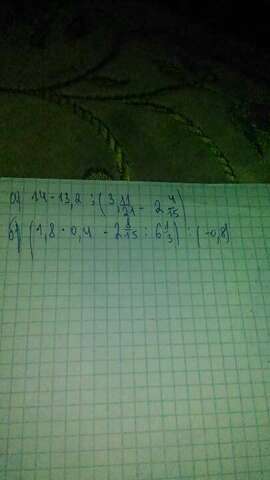 а) 14 - 13,2 : (3 11/21 - 2 4/15)
б) (1,8 · 0,4 - 2 8/15 : 6 1/3) : (-0,8)